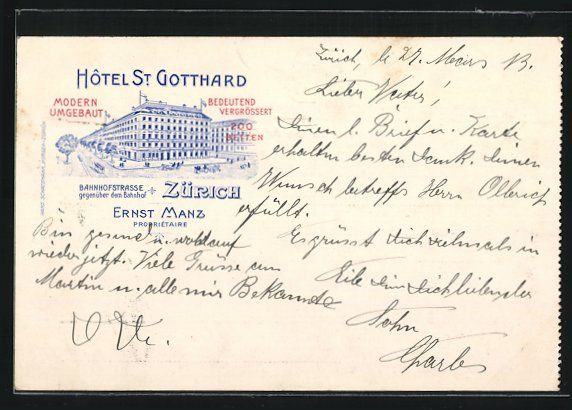 HÔTEL ST GOTTHARD
MODERN
UMGEBAUT
BEDEUTEND
VERGRÖSSERT
200
BETTEN
BAHNHOFSTRASSE
gegenüber dem Bahnhof
ZÜRICH
ERNST MANZ
PROPRIÉTAIRE
Zürich, le 27. März 13.
Lieber Vater!
Deinen l. Brief u. Karte
erhalten besten Dank. Deinen
Wunsch betreffs Herrn
erfüllt.
Es grüsst Dich vielmals in
Eile Dein Dich liebender
Sohn
Charles
Bin gesund u. wohlauf
wieder jetzt. Viele Grüsse an
Martin u. alle mir Bekannte